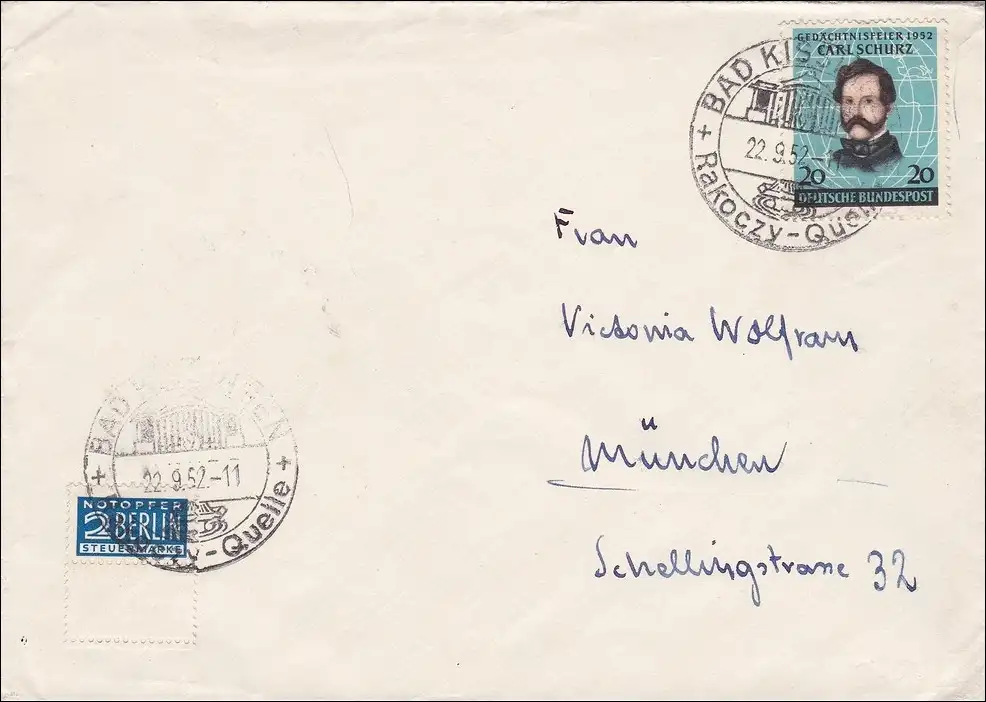 GEDÄCHTNISFEIER 1952
CARL SCHURZ
20 20
DEUTSCHE BUNDESPOST
BAD KIS
22.9.52-11
+ Rakoczy-Quell
Frau
Victoria Wolfram
München
Schellingstrasse 32
BAD
22.9.52-11
+ -Quelle +
NOTOPFER
2 BERLIN
STEUERMARKE